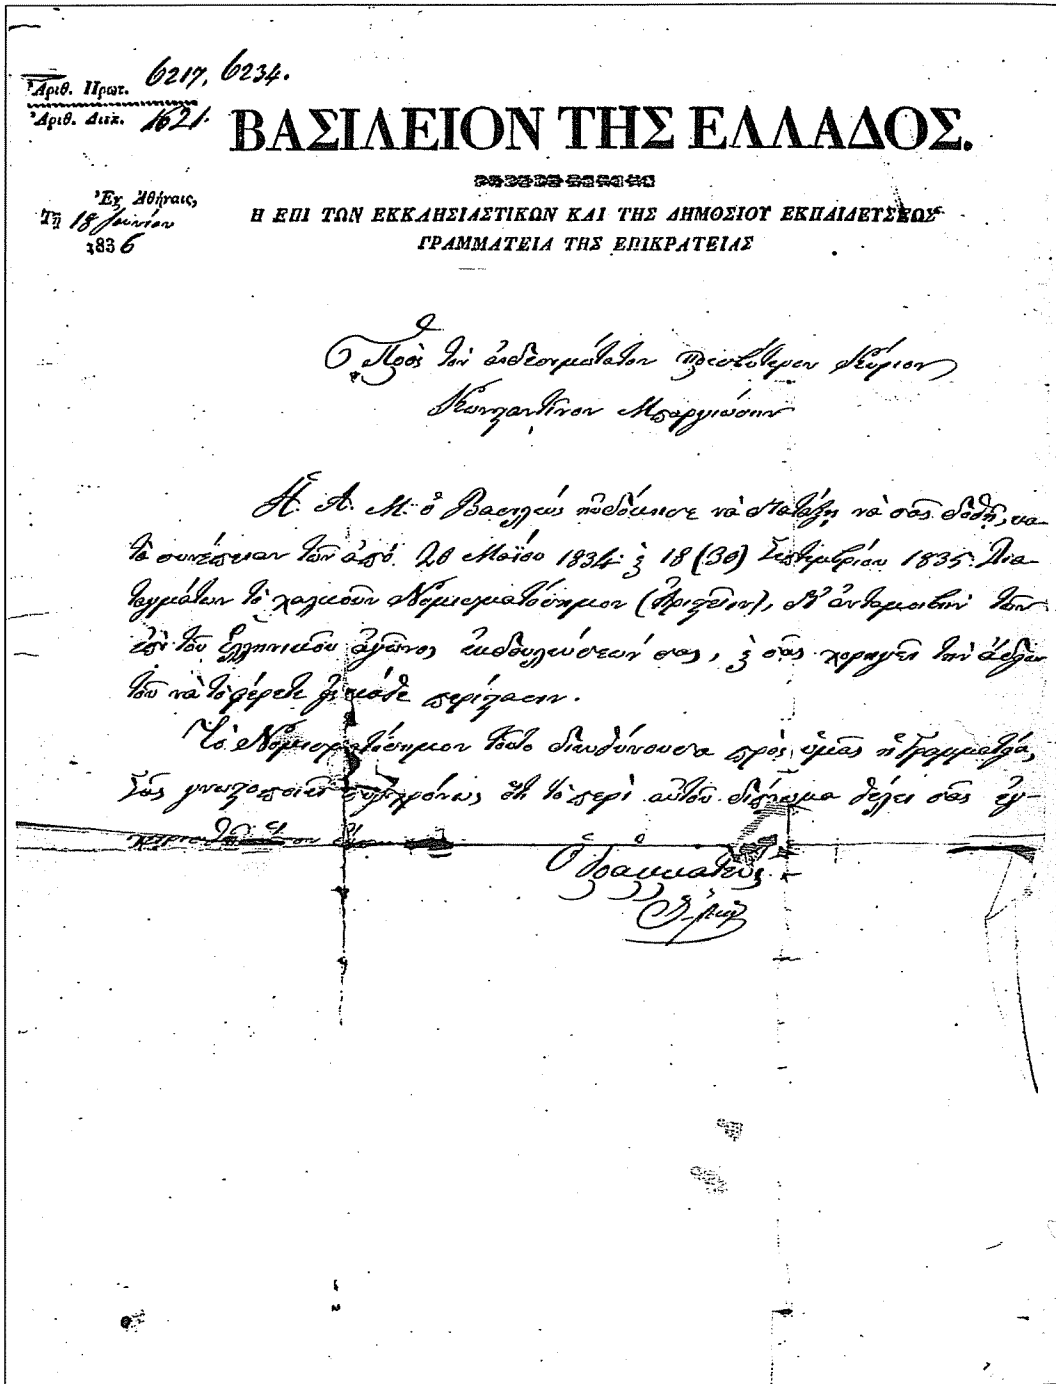 Ἀριθ. Πρωτ. 6217, 6234.
Ἀριθ. Διεκ. 1621.
ΒΑΣΙΛΕΙΟΝ ΤΗΣ ΕΛΛΑΔΟΣ.
Ἐν Ἀθήναις,
Τῇ 18 Ἰουνίου
1836
Η ΕΠΙ ΤΩΝ ΕΚΚΛΗΣΙΑΣΤΙΚΩΝ ΚΑΙ ΤΗΣ ΔΗΜΟΣΙΟΥ ΕΚΠΑΙΔΕΥΣΕΩΣ
ΓΡΑΜΜΑΤΕΙΑ ΤΗΣ ΕΠΙΚΡΑΤΕΙΑΣ
Πρὸς τὸν αἰδεσιμώτατον πρεσβύτερον Κύριον
Κωνσταντῖνον
Ἡ Α. Μ. ὁ Βασιλεὺς ηὐδόκησε νὰ διατάξῃ νὰ σᾶς δοθῇ, κα-
τὰ συνέπειαν τῶν ἀπὸ 20 Μαΐου 1834 ϗ 18 (30) Σεπτεμβρίου 1835 Δια-
ταγμάτων τὸ χαλκοῦν Νομισματόσημον (Ἀριστεῖον), δι' ἀνταμοιβὴν τῶν
ἐπὶ τοῦ Ἑλληνικοῦ ἀγῶνος ἐκδουλεύσεών σας, ϗ σᾶς χορηγεῖ τὴν ἄδειαν
τοῦ νὰ τὸ φέρετε εἰς κάθε περίστασιν.
Τὸ Νομισματόσημον τοῦτο διευθύνουσα πρὸς ὑμᾶς ἡ Γραμματεία,
Σᾶς γνωστοποιεῖ συγχρόνως ὅτι τὸ περὶ αὐτοῦ δίπλωμα θέλει σᾶς ἐγ-
χειρισθῆ
Ὁ Γραμματεύς